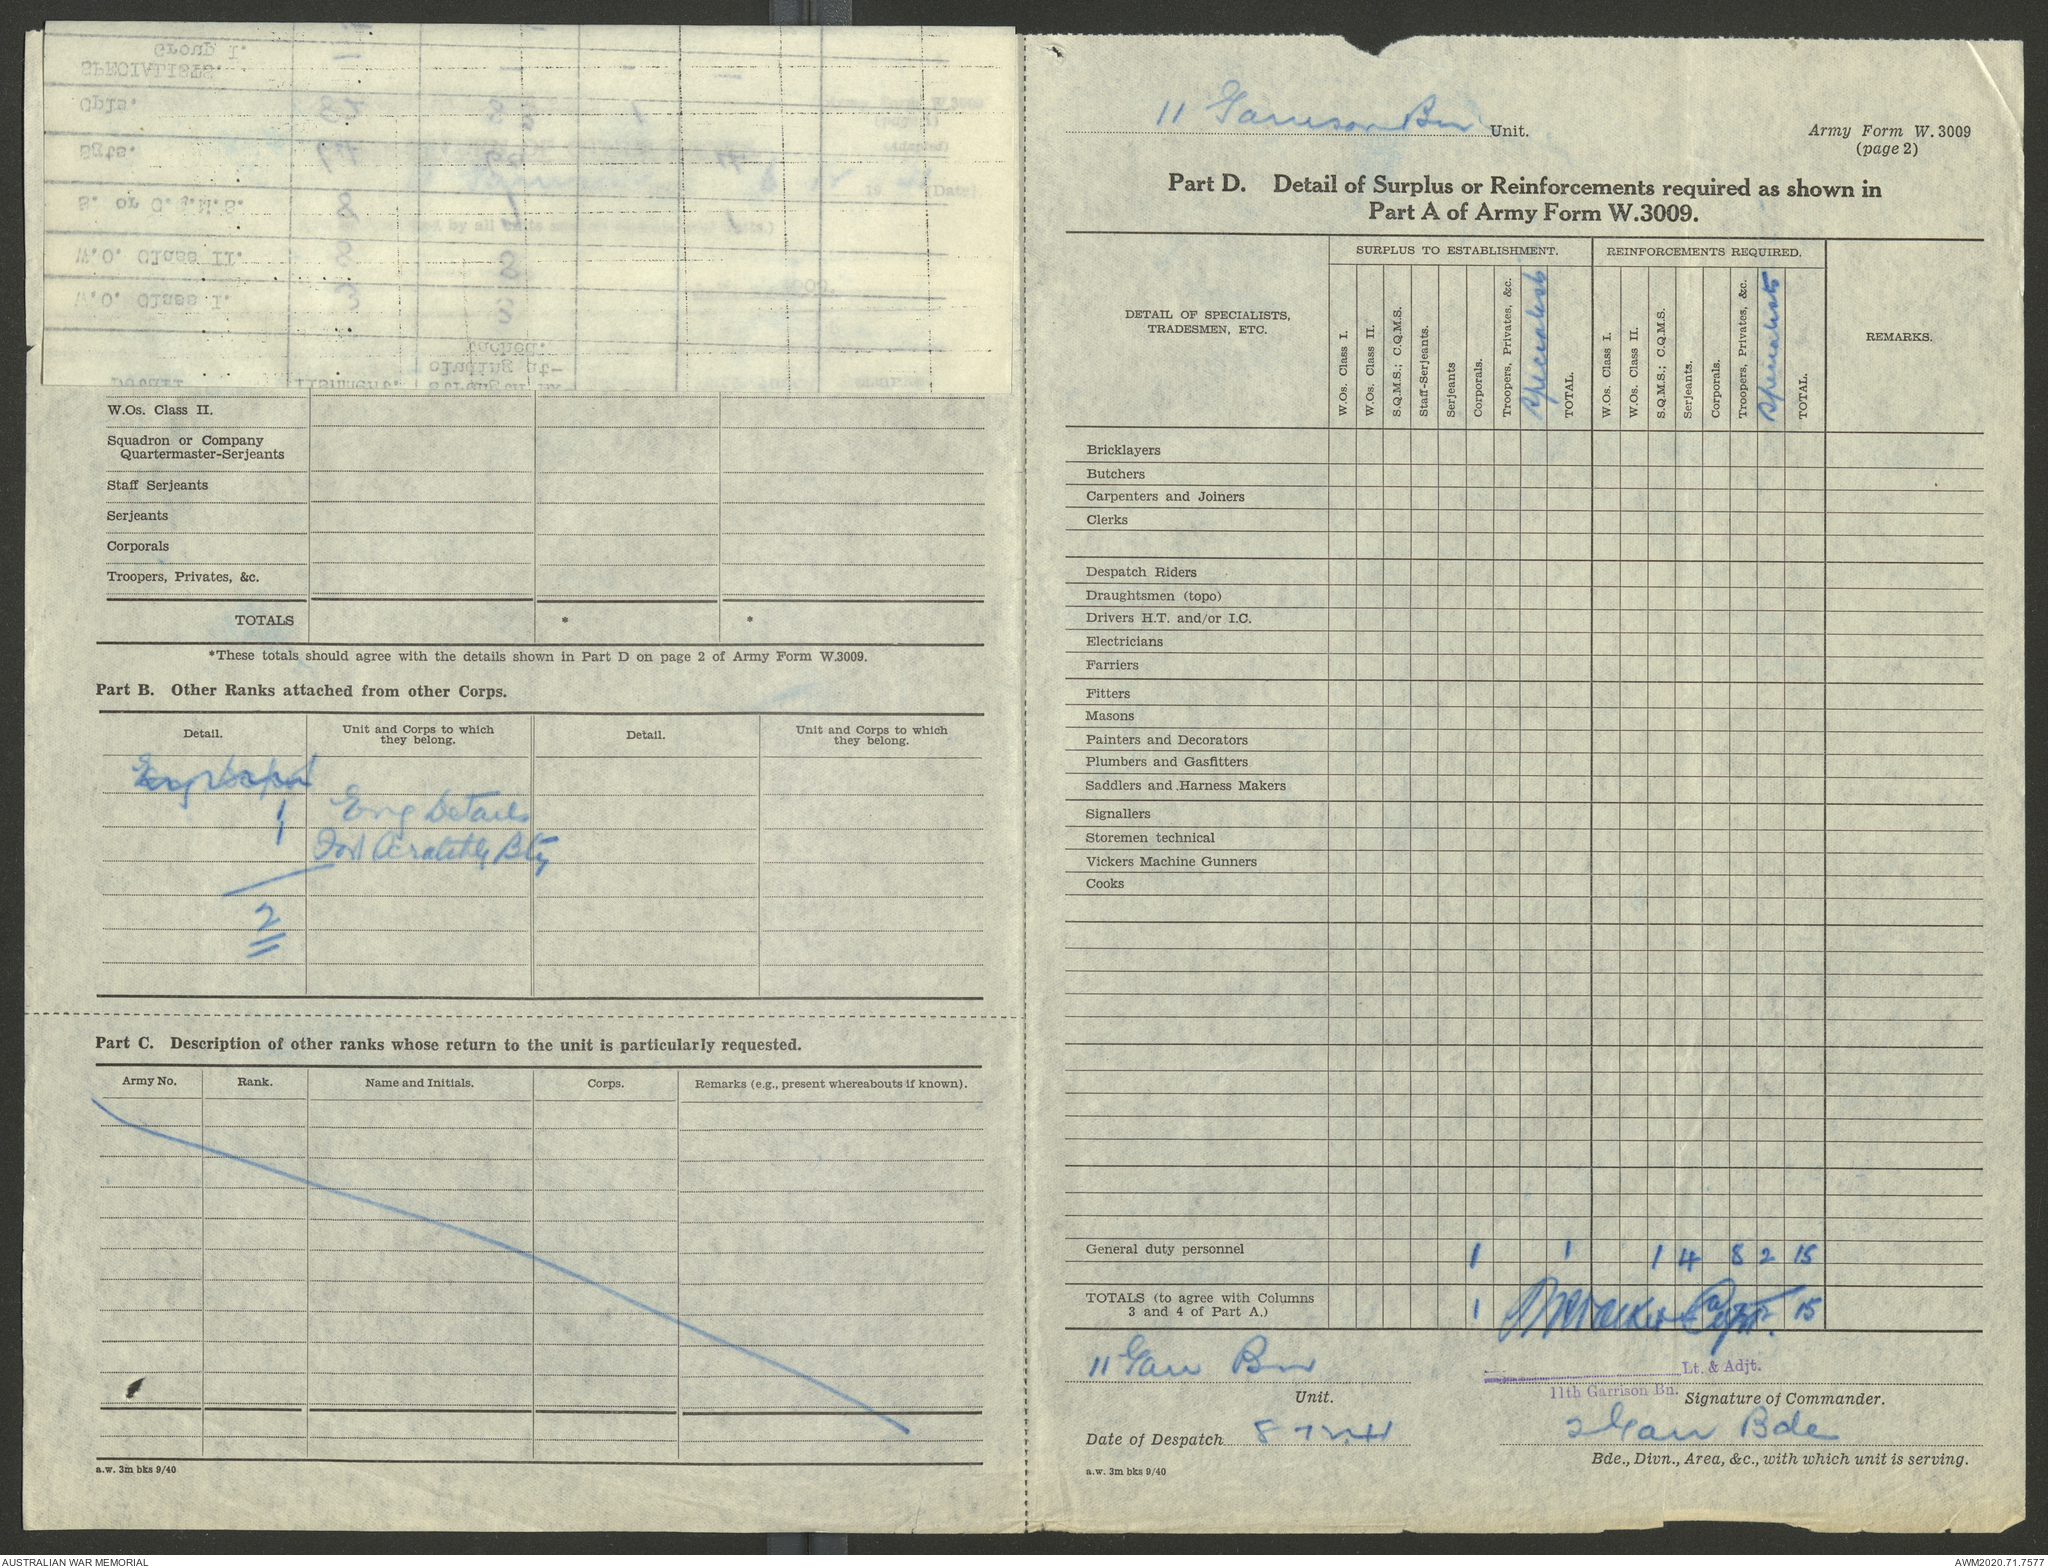 Group I.
SPECIALISTS.
Cpls.
Sgts.
S. or C.Q.M.S.
W.O. Class II.
W.O. Class I.
W.Os. Class II.
Squadron or Company
Quartermaster-Serjeants
Staff Serjeants
Serjeants
Corporals
Troopers, Privates, &c.
TOTALS * *
*These totals should agree with the details shown in Part D on page 2 of Army Form W.3009.
Part B. Other Ranks attached from other Corps.
Detail. Unit and Corps to which they belong. Detail. Unit and Corps to which they belong.
1 Eng Details
1 Fort Scratchley Bty
2
Part C. Description of other ranks whose return to the unit is particularly requested.
Army No. Rank. Name and Initials. Corps. Remarks (e.g., present whereabouts if known).
a.w. 3m bks 9/40
11 Garrison Bn Unit.
Army Form W. 3009
(page 2)
Part D. Detail of Surplus or Reinforcements required as shown in
Part A of Army Form W.3009.
SURPLUS TO ESTABLISHMENT. REINFORCEMENTS REQUIRED.
DETAIL OF SPECIALISTS,
TRADESMEN, ETC.
W.Os. Class I.
W.Os. Class II.
S.Q.M.S.; C.Q.M.S.
Staff-Serjeants.
Serjeants
Corporals.
Troopers, Privates, &c.
Specialists
TOTAL.
W.Os. Class I.
W.Os. Class II.
S.Q.M.S.; C.Q.M.S.
Serjeants.
Corporals.
Troopers, Privates, &c.
Specialists
TOTAL.
REMARKS.
Bricklayers
Butchers
Carpenters and Joiners
Clerks
Despatch Riders
Draughtsmen (topo)
Drivers H.T. and/or I.C.
Electricians
Farriers
Fitters
Masons
Painters and Decorators
Plumbers and Gasfitters
Saddlers and Harness Makers
Signallers
Storemen technical
Vickers Machine Gunners
Cooks
General duty personnel 1 1 1 4 8 2 15
TOTALS (to agree with Columns
3 and 4 of Part A.) 1 15
Capt.
11 Garr Bn
Unit.
Lt. & Adjt.
11th Garrison Bn. Signature of Commander.
Date of Despatch 8-12-41
2 Garr Bde
Bde., Divn., Area, &c., with which unit is serving.
a.w. 3m bks 9/40
AUSTRALIAN WAR MEMORIAL
AWM2020.71.7577